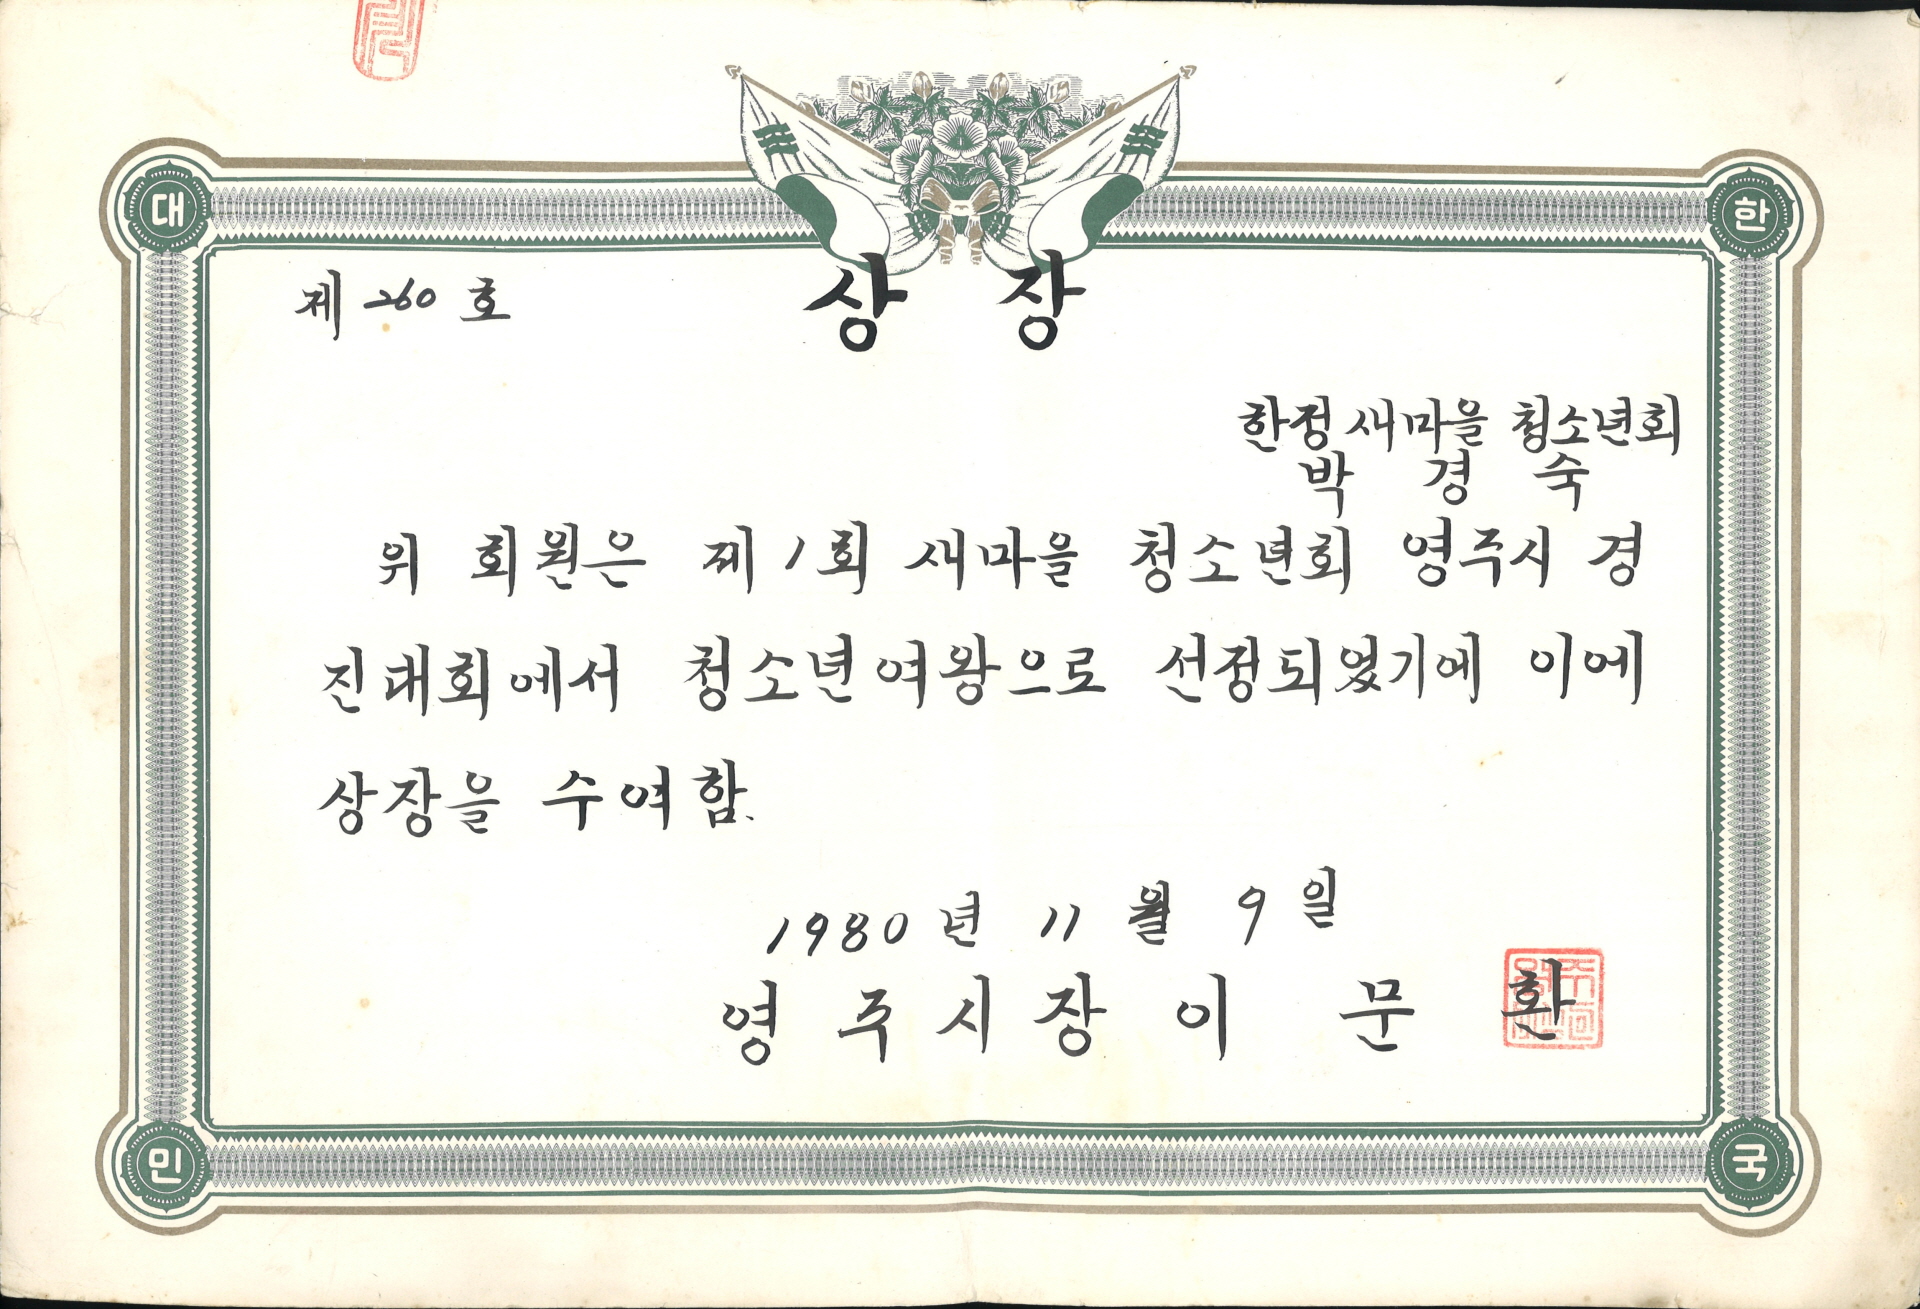 대 한
제 260 호
상 장
한정 새마을 청소년회
박 경 숙
위 회원은 제1회 새마을 청소년회 영주시 경
진대회에서 청소년여왕으로 선정되었기에 이에
상장을 수여함.
1980년 11월 9일
영주시장 이 문 환
민 국